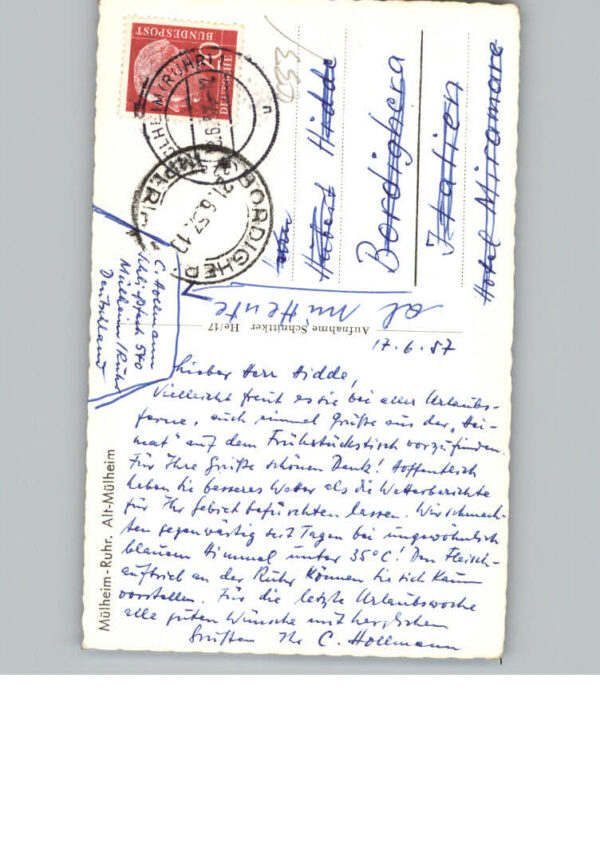 17.6.57
Lieber Herr Hidde,
Vielleicht freut es Sie bei aller Urlaubs-
ferne, auch einmal Grüße aus der „Hei-
mat" auf dem Frühstückstisch vorzufinden.
Für Ihre Grüße schönen Dank! Hoffentlich
haben Sie besseres Wetter als die Wetterberichte
für Ihr Gebiet befürchten lassen. Wir schmach-
ten gegenwärtig seit Tagen bei ungewöhnlich
blauem Himmel unter 35°C! Den Fleisch-
auftrieb an der Ruhr können Sie sich kaum
vorstellen. Für die letzte Urlaubswoche
alle guten Wünsche mit herzlichen
Grüßen Ihr C. Hollmann
Hubert Hidde
Bordighera
Italien
Hotel Miramare
al mittente
C. Hollmann
540
Mülheim/Ruhr
Deutschland
Mülheim-Ruhr. Alt-Mülheim
Aufnahme Schnittker He/17
DEUTSCHE
BUNDESPOST
20
MÜLHEIM (RUHR)
BORDIGHERA
IMPERIA
21.6.57.